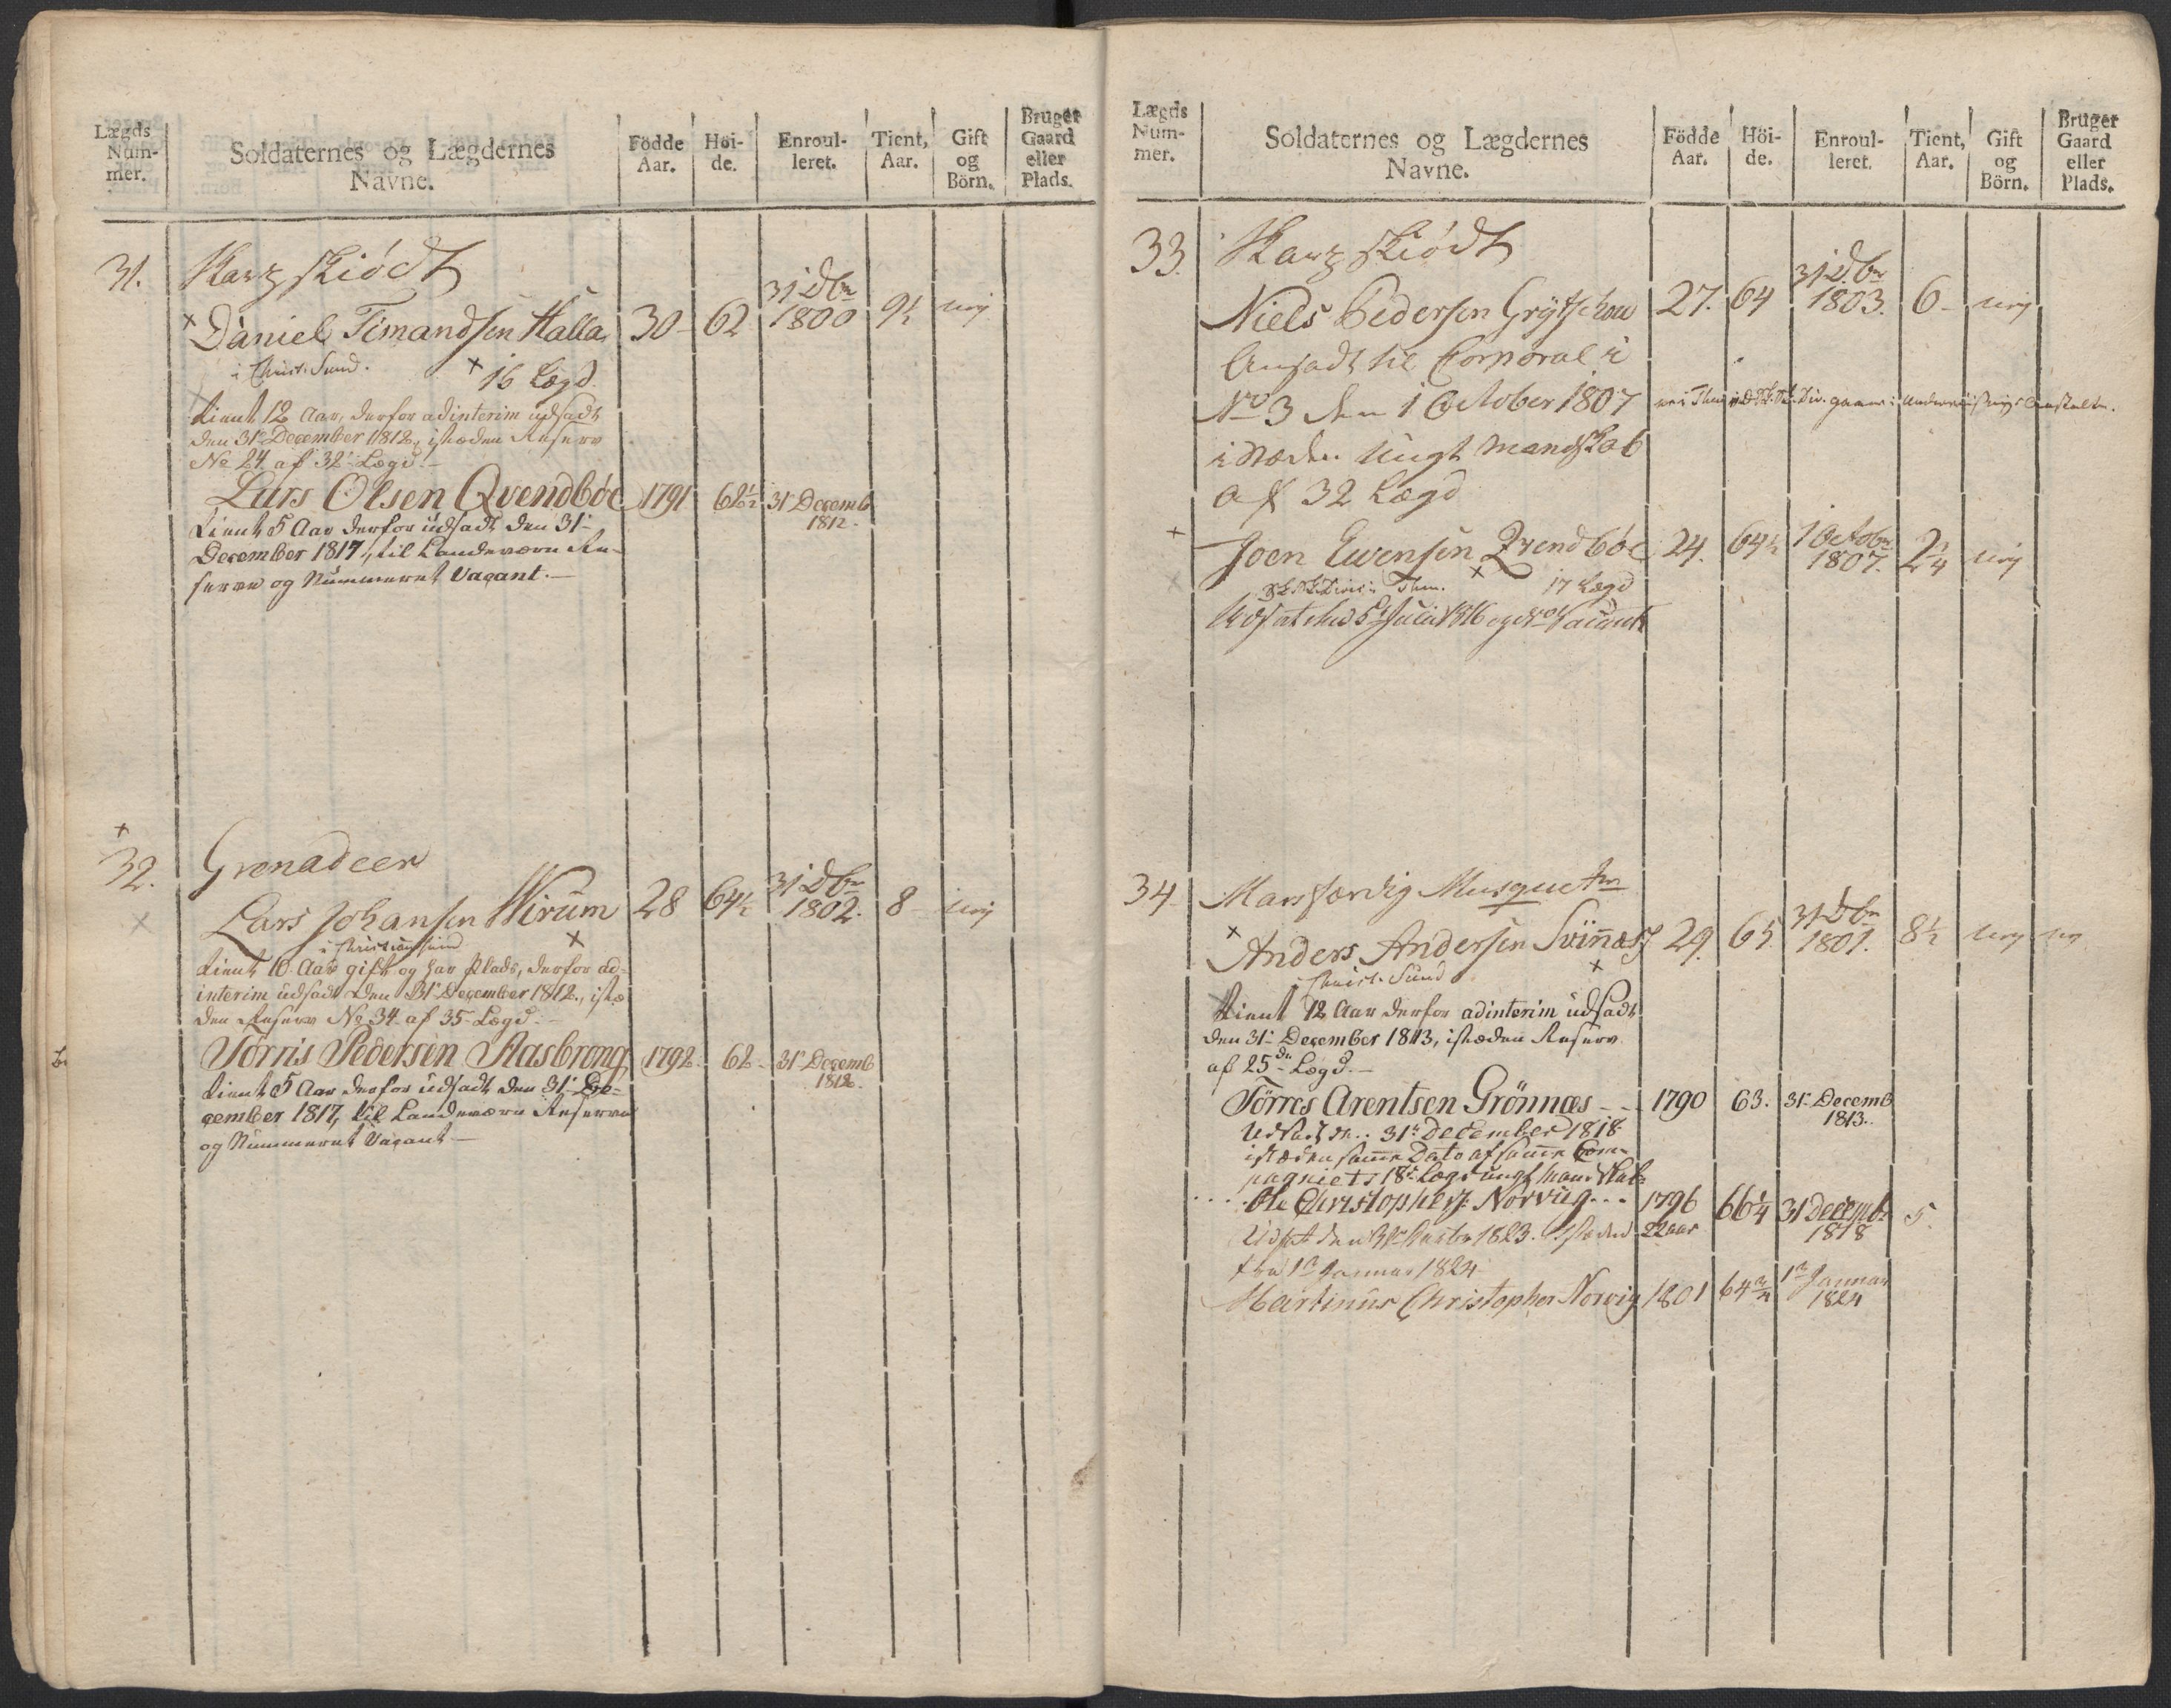 Lægds Num- mer. Soldaternes og Lægdernes Navne. Födde Aar. Höi- de. Enroul- leret. Tient, Aar. Gift og Börn. Bruger Gaard eller Plads.
31. Skarpskiødt
Daniel Timandsen Halla 30 62 31 Dbr 1800 9½ nej
i Christ: Sund. 16 Lægd.
tient 12 Aar, derfor ad interim udsadt
den 31 December 1812, istæden Reserv
No 24 af 32 Lægd.
Lars Olsen Qvendbøe 1791 62½ 31 Decemb 1812.
tient 5 Aar derfor udsadt den 31
December 1817, til Landeværn Re-
serven og Nummeret Vacant.
32. Grenadeer
Lars Johansen Wirum 28 64½ 31 Dbr 1802. 8 nej
i Christiansund
tient 10 Aar gift og har Plads, derfor ad-
interim udsadt den 31 December 1812., istæ
den Reserv No 34 af 35 Lægd.
Törris Pedersen Aasbrong 1792. 62 31 Decemb 1812.
tient 5 Aar derfor udsadt den 31 De-
cember 1817, til Landeværn Reserven
og Nummeret Vacant
Lægds Num- mer. Soldaternes og Lægdernes Navne. Födde Aar. Höi- de. Enroul- leret. Tient, Aar. Gift og Börn. Bruger Gaard eller Plads.
33. Skarpskiødt
Niels Pedersen 27. 64 31 Dbr 1803. 6 nej
Ansadt til Corporal i
No 3 den 1 October 1807
i stæden Ungt Mandskab
af 32 Lægd
Joen Ewensen Qvendböe 24. 64½ 1 Octobr 1807. 2¼ nej
17 Lægd
Udsat den 5 Juli 1816 og No Vacant
34 Marsfærdig Musquetr
Anders Andersen Svinnes 29. 65. 31 Dbr 1801. 8½ nej nej
i Christ: Sund
tient 12 Aar derfor ad interim udsadt
den 31 December 1813, istæden Reserv
af 25de Lægd.
Törres Arentsen Grönnæs 1790 63. 31 Decemb 1813.
Udsadt den 31te December 1818
istæden samme Dato af samme Com-
pagniets 18de Lægd ungt Mandskab
Ole Christophers: Norvug 1796 66¼ 31 Decembr 1818 5.
Udsat den 1823. istæden
fra 1ste Januar 1824
Martinus Christopher Norvig 1801 64¾ 1ste Januar 1824